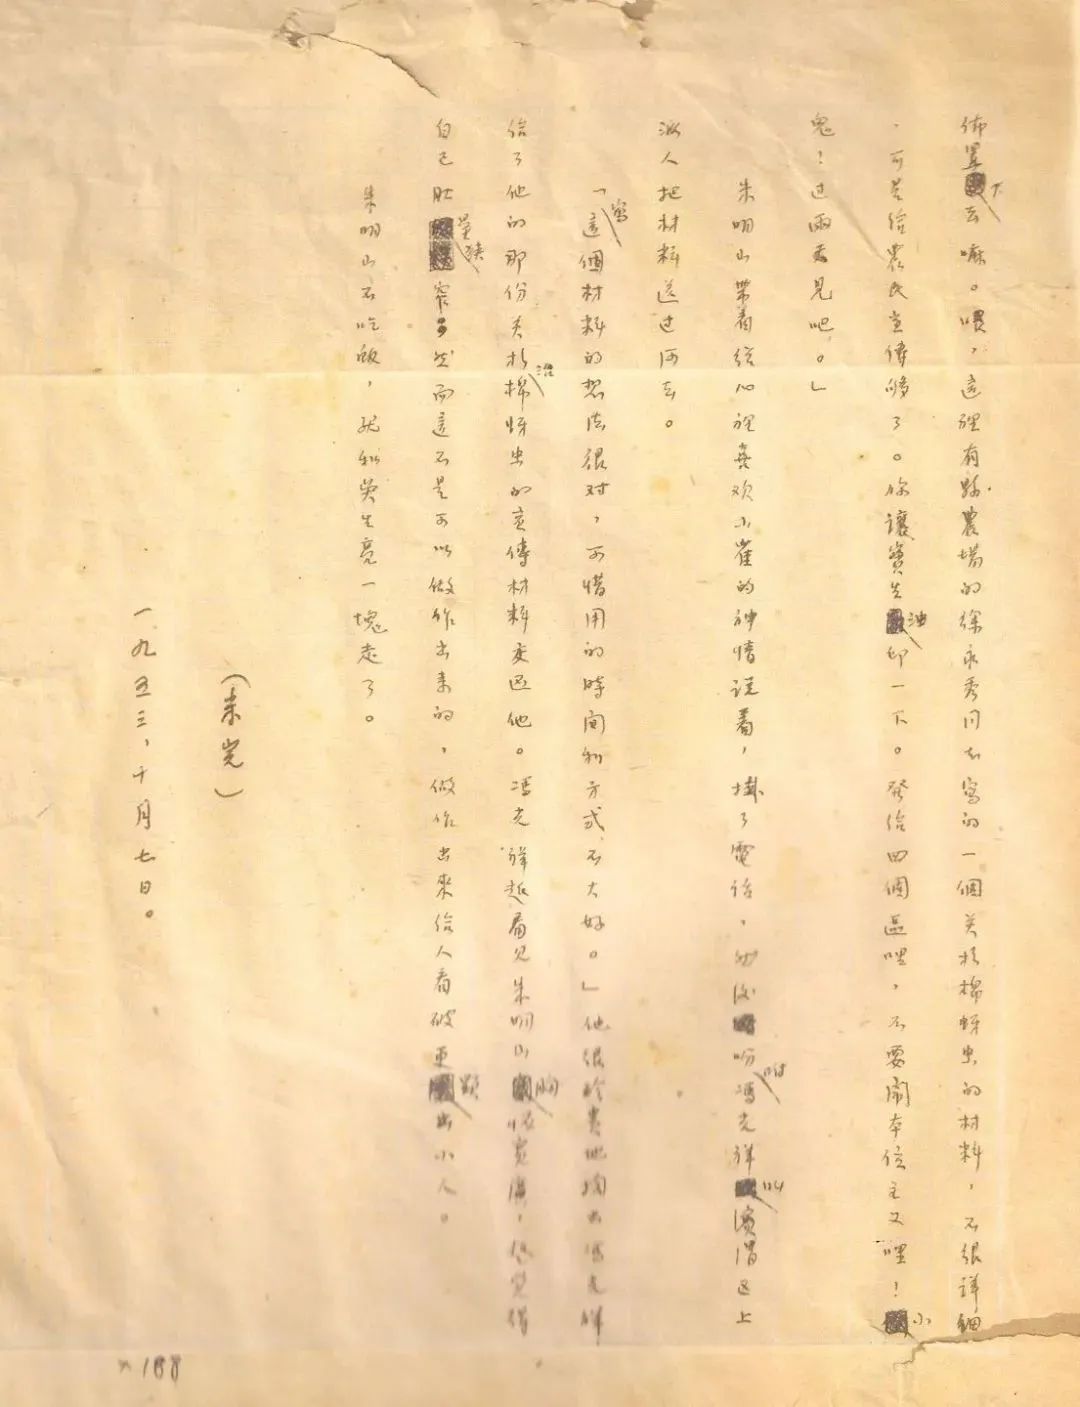 佈置下去嘛。喂，這裡有縣農場的徐永秀同志寫的一個关於棉蚜虫的材料，不很詳細
，可是給農民宣傳够了。你讓寶生油印一下。發給四個區哩，不要鬧本位主义哩！小
鬼！过兩天見吧。」
朱明山带着從心裡喜欢小崔的神情説着，掛了電話，然後吩咐馮光祥叫濱渭区上
派人把材料送过河去。
「寫這個材料的想法很对，可惜用的時間和方式不大好。」他很 地掏出馮光祥
給了他的那份关於治棉蚜虫的宣傳材料交還他。馮光祥起看見朱明山胸怀寬廣，
自己肚量狹窄了然而這不是可以做作出來的，做作出來給人看破更顯出小人。
朱明山不吃飯，就和吳生亮一塊走了。
(未完)
一九五三，十月七日。
188